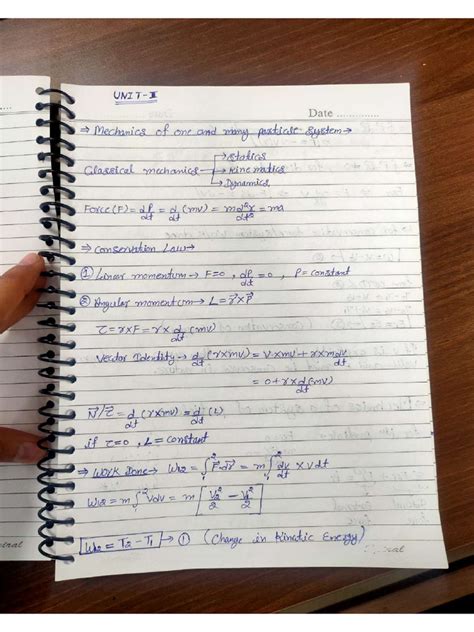 UNIT-II
Date ..............
⇒ Mechanics of one and many particle System →
Classical mechanics → Statics
→ Kinematics
→ Dynamics
Force (F) = dP/dt = d/dt (mv) = m d²r/dt² = ma
⇒ Conservation Law →
① Linear momentum → F=0, dP/dt = 0, P = constant
② Angular momentum → L = r⃗ × P⃗
τ = r×F = r× d/dt (mv)
Vector Identity → d/dt (r×mv) = v×mv + r×m dv/dt
= 0 + r× d/dt (mv)
N⃗/τ⃗ = d/dt (r×mv) = d/dt (L)
if τ=0, L = constant
⇒ Work Done → W₁₂ = ∫₁² F⃗.dr⃗ = m∫₁² dv/dt × vdt
W₁₂ = m∫₁² vdv = m [V₂²/2 − V₁²/2]
W₁₂ = T₂ − T₁ → ① (Change in Kinetic Energy)